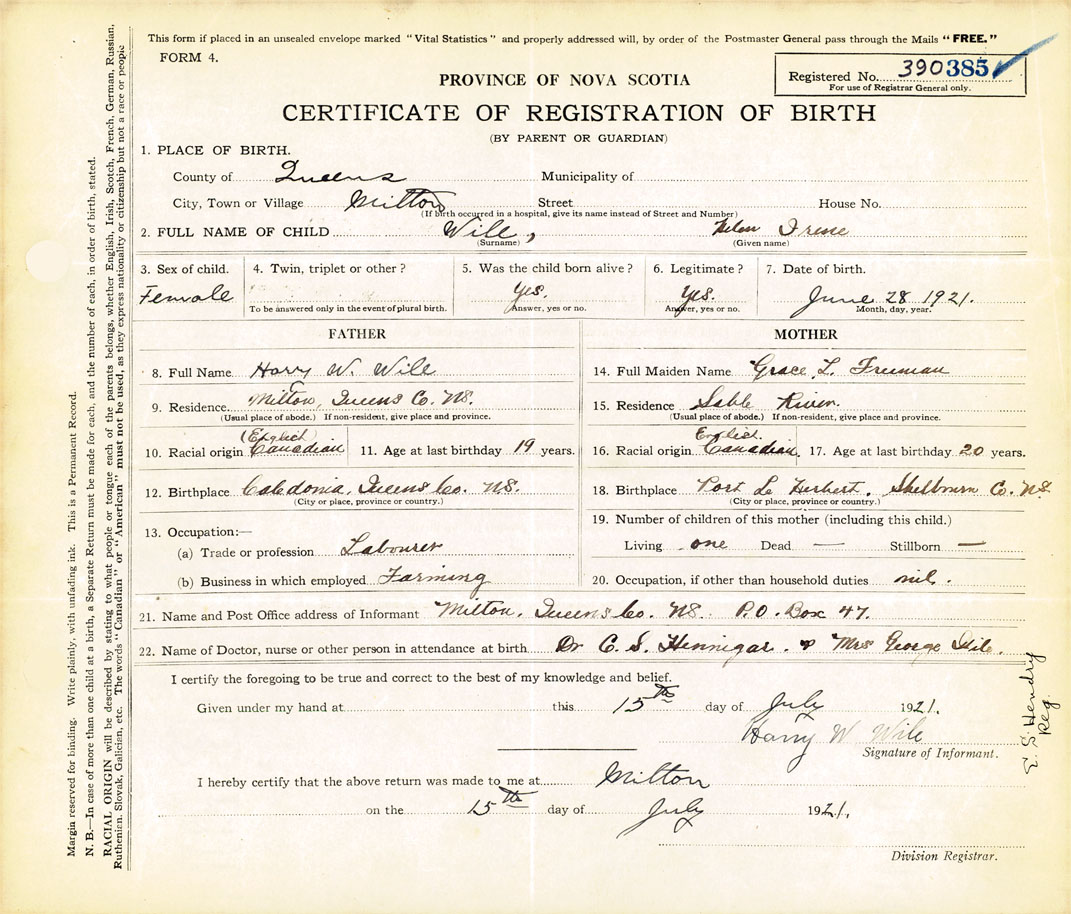 This form if placed in an unsealed envelope marked "Vital Statistics" and properly addressed will, by order of the Postmaster General pass through the Mails "FREE."
FORM 4.
Registered No. 390385
For use of Registrar General only.
PROVINCE OF NOVA SCOTIA
CERTIFICATE OF REGISTRATION OF BIRTH
(BY PARENT OR GUARDIAN)
1. PLACE OF BIRTH.
County of Queens Municipality of
City, Town or Village Milton Street House No.
(If birth occurred in a hospital, give its name instead of Street and Number)
2. FULL NAME OF CHILD Wile, Helen Irene
(Surname) (Given name)
3. Sex of child. 4. Twin, triplet or other? 5. Was the child born alive? 6. Legitimate? 7. Date of birth.
Female Yes. Yes. June 28 1921.
To be answered only in the event of plural birth. Answer, yes or no. Answer, yes or no. Month, day, year.
FATHER MOTHER
8. Full Name Harry W. Wile 14. Full Maiden Name Grace L. Freeman
9. Residence Milton, Queens Co. NS. 15. Residence Sable River
(Usual place of abode.) If non-resident, give place and province. (Usual place of abode.) If non-resident, give place and province.
(English) English.
10. Racial origin Canadian 11. Age at last birthday 19 years. 16. Racial origin Canadian. 17. Age at last birthday 20 years.
12. Birthplace Caledonia, Queens Co. NS. 18. Birthplace Port Le Herbert. Shelbourn Co. NS
(City or place, province or country.) (City or place, province or country.)
13. Occupation:— 19. Number of children of this mother (including this child.)
(a) Trade or profession Labourer Living one Dead — Stillborn —
(b) Business in which employed Farming 20. Occupation, if other than household duties nil.
21. Name and Post Office address of Informant Milton. Queens Co. NS. P.O. Box 47.
22. Name of Doctor, nurse or other person in attendance at birth Dr C. S. Hennigar. & Mrs George
I certify the foregoing to be true and correct to the best of my knowledge and belief.
Given under my hand at this 15th day of July 1921.
Harry W Wile
Signature of Informant.
I hereby certify that the above return was made to me at Milton
on the 15th day of July 1921.
Division Registrar.
Margin reserved for binding. Write plainly, with unfading ink. This is a Permanent Record.
N. B.—In case of more than one child at a birth, a Separate Return must be made for each, and the number of each, in order of birth, stated.
RACIAL ORIGIN will be described by stating to what people or tongue each of the parents belongs, whether English, Irish, Scotch, French, German, Russian,
Ruthenien, Slovak, Galician, etc. The words "Canadian" or "American" must not be used, as they express nationality or citizenship but not a race or people
E. S. Hendry
Reg.